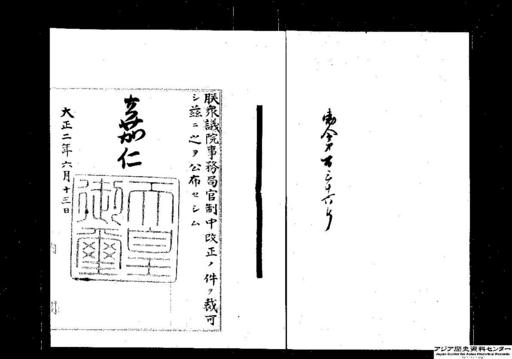 勅令第百三十六号
朕衆議院事務局官制中改正ノ件ヲ裁可
シ茲ニ之ヲ公布セシム
嘉仁
天皇
御璽
大正二年六月十三日
内閣
アジア歴史資料センター
Japan Center for Asian Historical Records